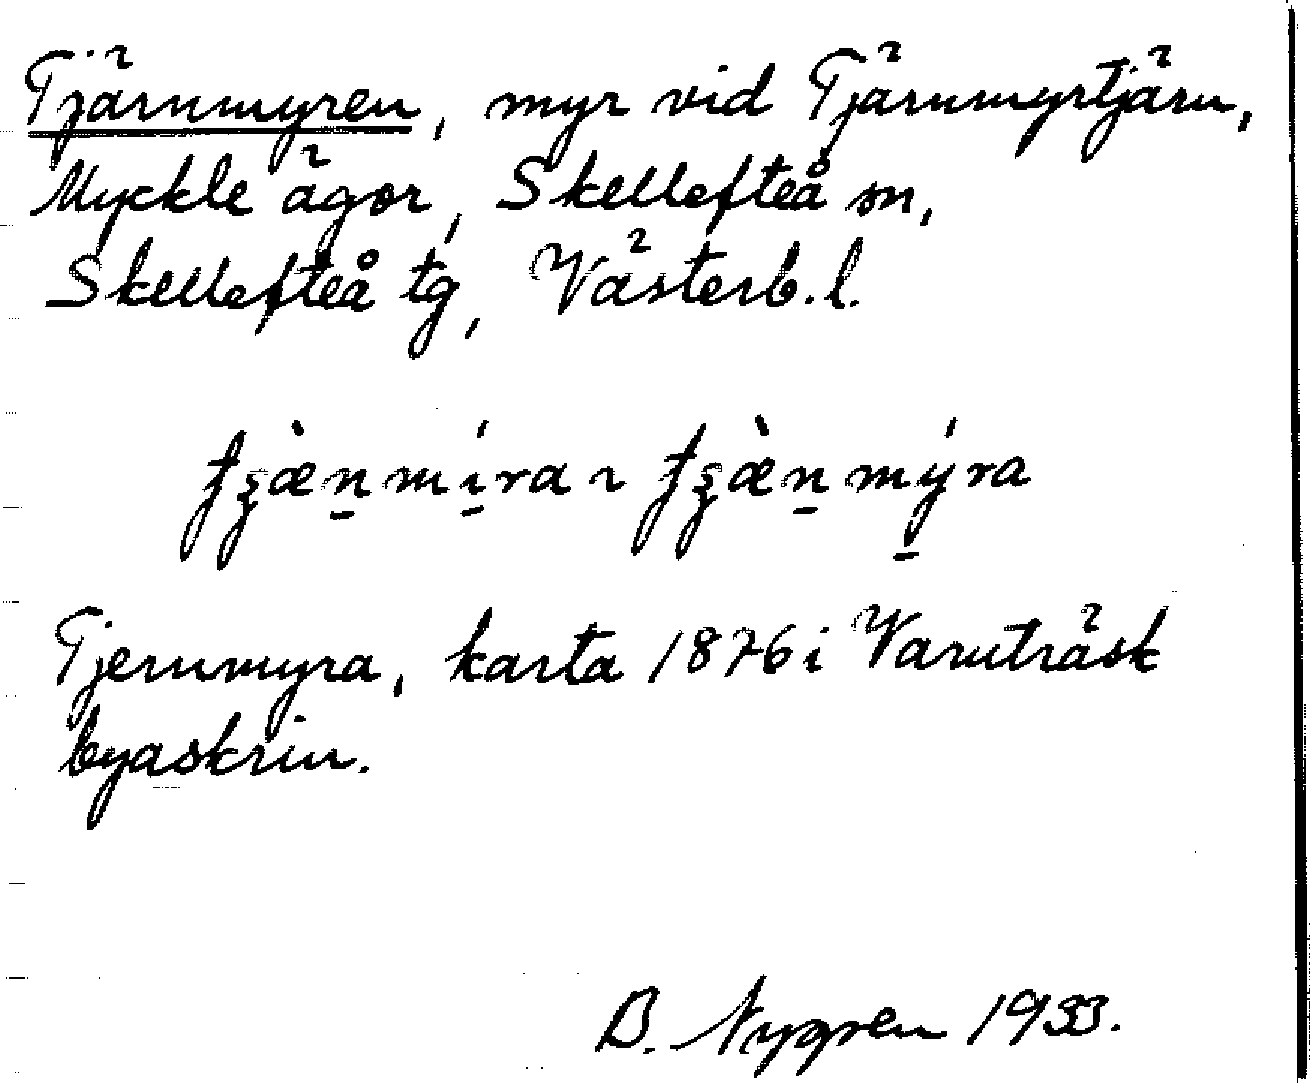 Tjärnmyren, myr vid Tjärnmyrtjärn,
Myckle ägor, Skellefteå sn,
Skellefteå tg, Västerb. l.
Tjernmyra, karta 1876 i Varuträsk
byaskrin.
B. Nygren 1933.